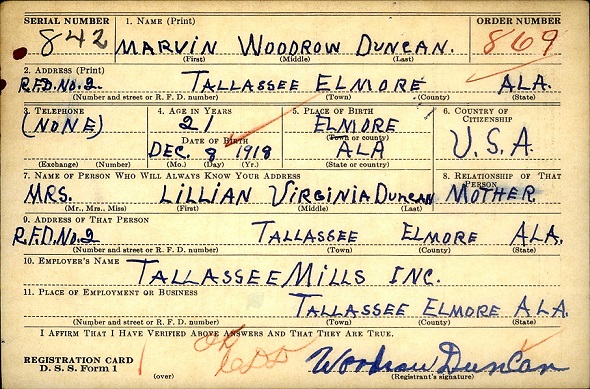 SERIAL NUMBER 1. NAME (Print) ORDER NUMBER
842 MARVIN WOODROW DUNCAN. 869
(First) (Middle) (Last)
2. ADDRESS (Print)
R.F.D. No. 2. TALLASSEE ELMORE ALA.
(Number and street or R. F. D. number) (Town) (County) (State)
3. TELEPHONE 4. AGE IN YEARS 5. PLACE OF BIRTH 6. COUNTRY OF CITIZENSHIP
(NONE) 21 ELMORE U.S.A.
DATE OF BIRTH (Town or county)
DEC. 8, 1918 ALA
(Exchange) (Number) (Mo.) (Day) (Yr.) (State or country)
7. NAME OF PERSON WHO WILL ALWAYS KNOW YOUR ADDRESS 8. RELATIONSHIP OF THAT PERSON
MRS. LILLIAN VIRGINIA DUNCAN MOTHER
(Mr., Mrs., Miss) (First) (Middle) (Last)
9. ADDRESS OF THAT PERSON
R.F.D. No. 2 TALLASSEE ELMORE ALA.
(Number and street or R. F. D. number) (Town) (County) (State)
10. EMPLOYER'S NAME
TALLASSEE MILLS INC.
11. PLACE OF EMPLOYMENT OR BUSINESS
TALLASSEE ELMORE ALA.
(Number and street or R. F. D. number) (Town) (County) (State)
I AFFIRM THAT I HAVE VERIFIED ABOVE ANSWERS AND THAT THEY ARE TRUE.
OK
REGISTRATION CARD
D. S. S. Form 1 (over) Woodrow Duncan
(Registrant's signature)